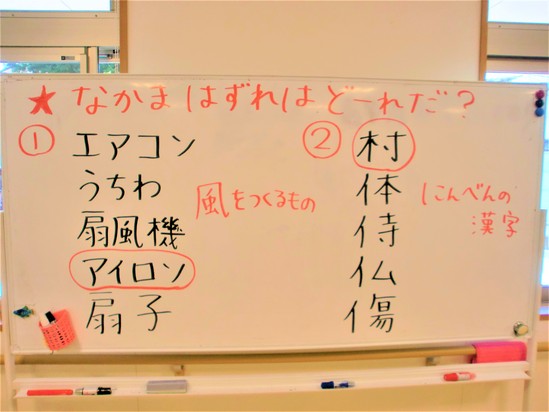 ★なかまはずれはどーれだ？
① エアコン
うちわ
扇風機
アイロン
扇子
風をつくるもの
② 村
体
侍
仏
傷
にんべんの
漢字